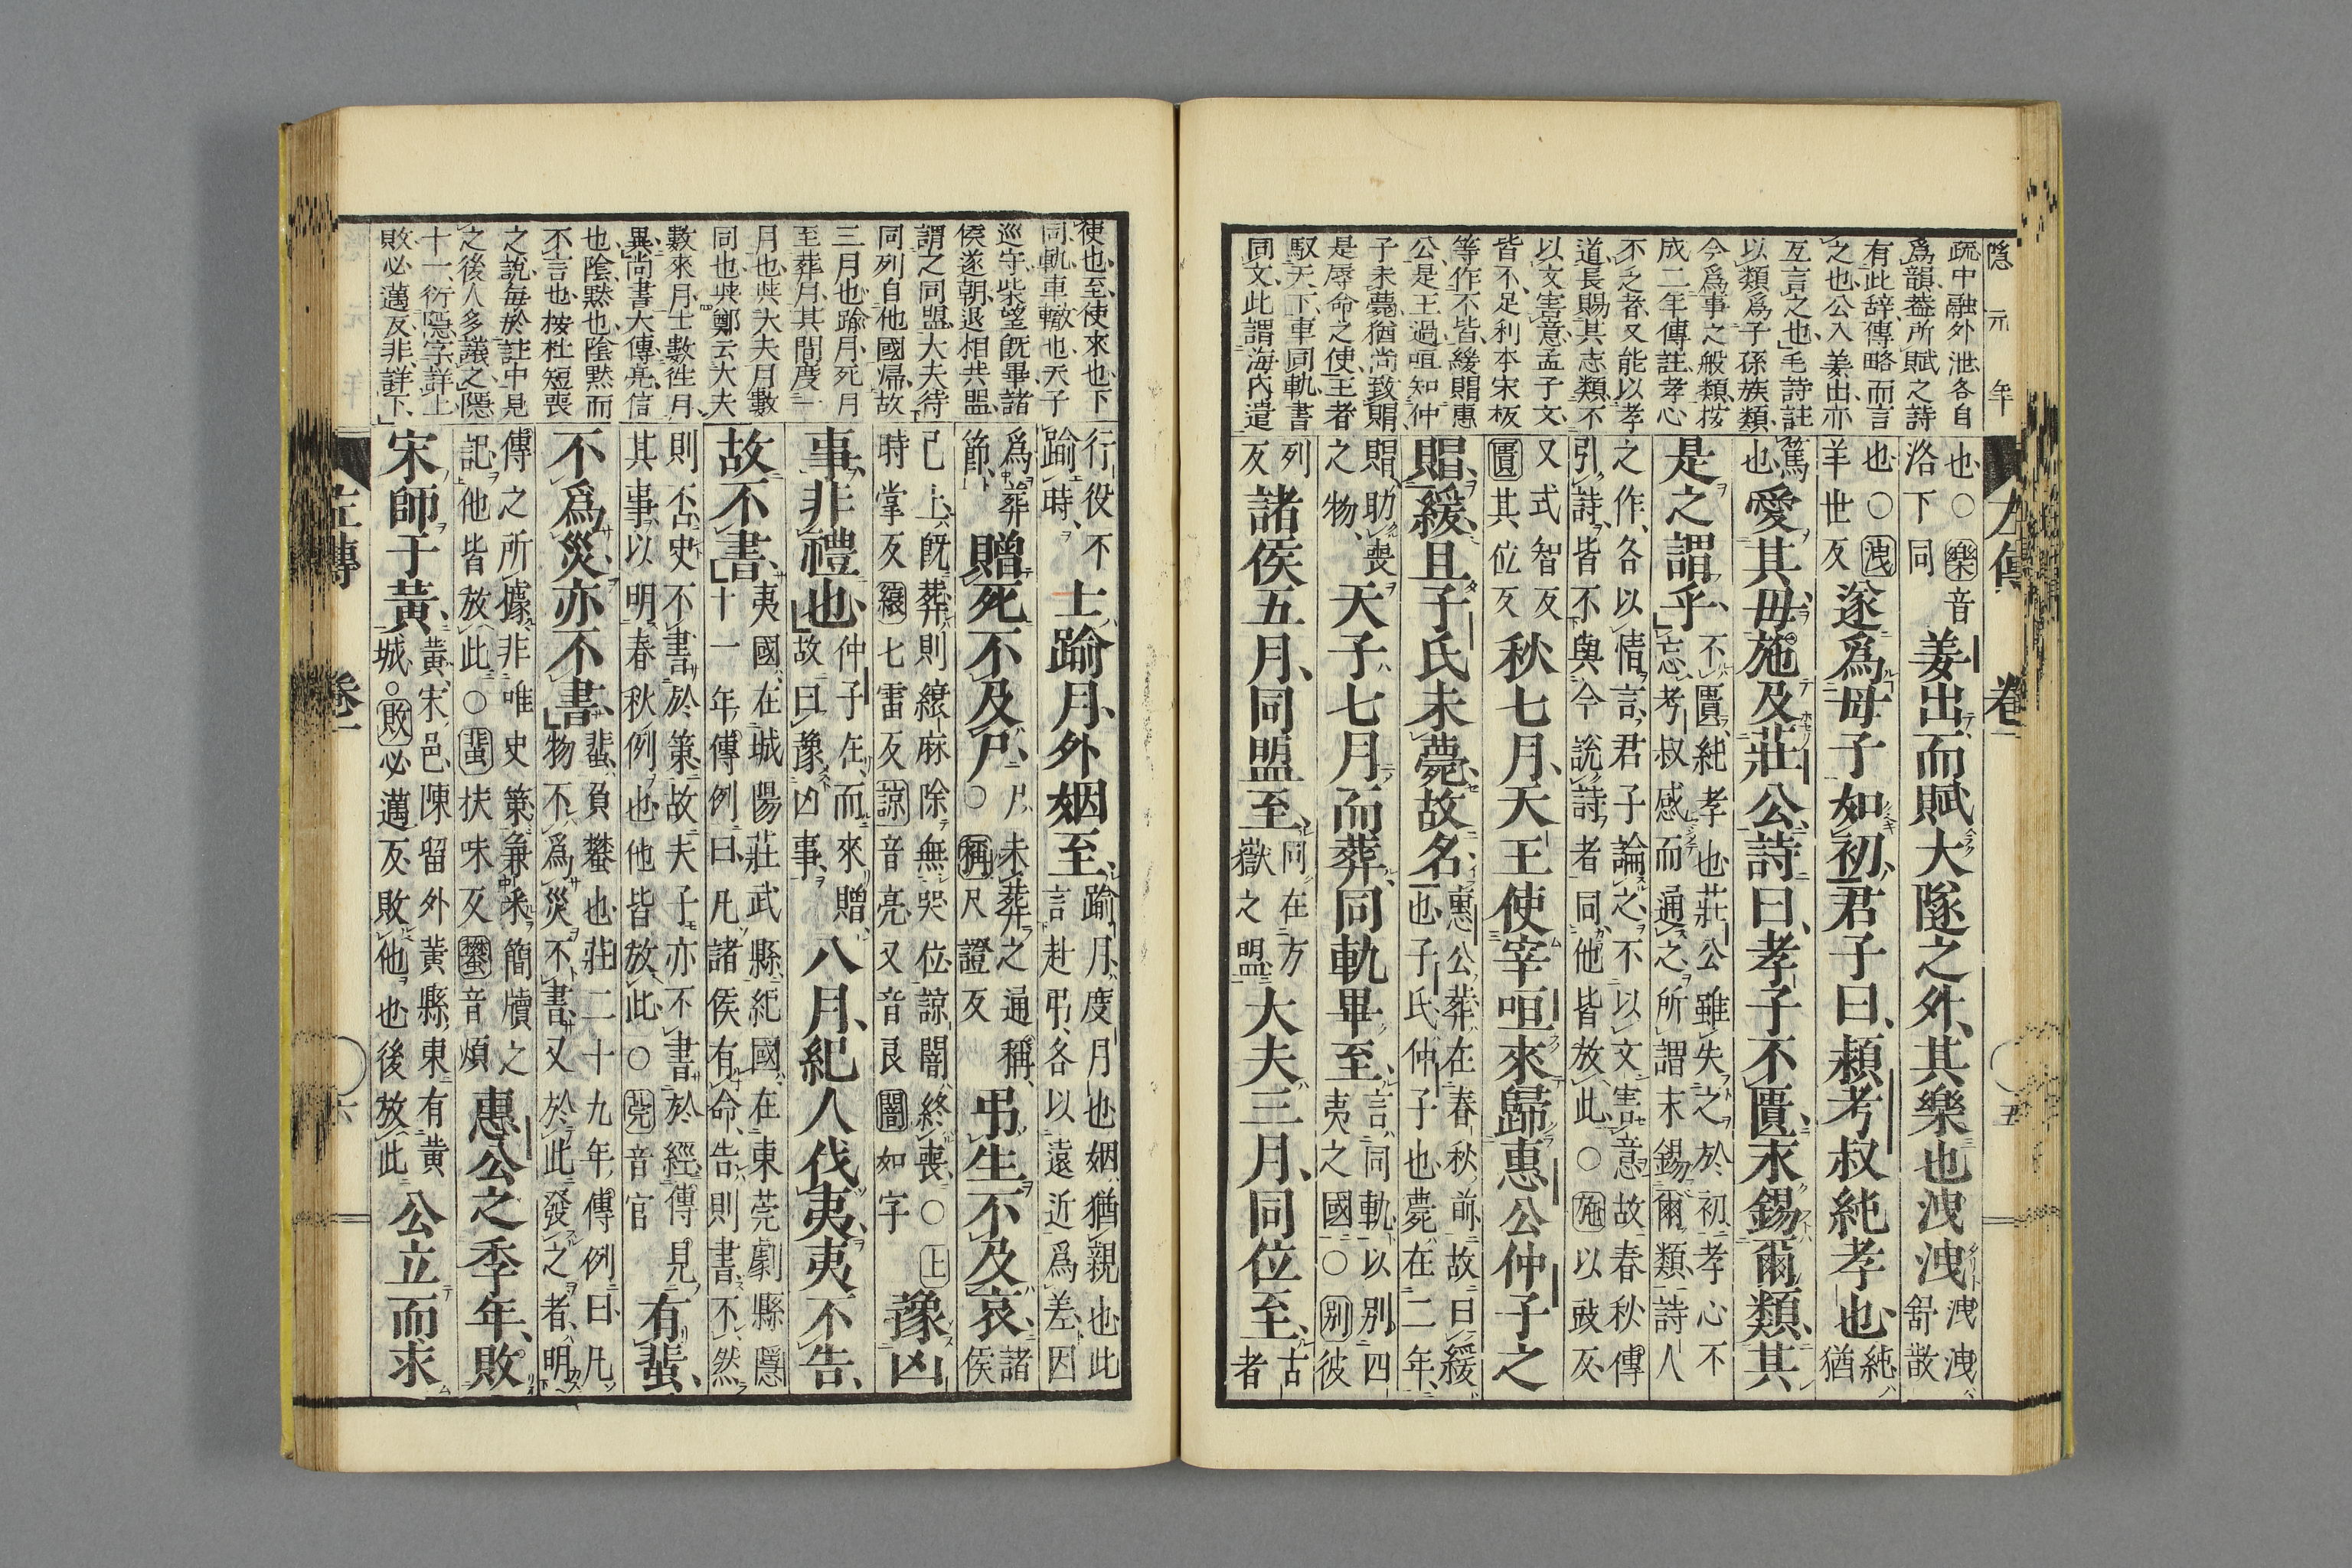 隱元年
疏中融外泄各自
爲韻蓋所賦之詩
有此辞傳略而言
之也公入姜出亦
互言之也毛詩註
以類爲子孫族類
今爲事之般類按
成二年傳註孝心
不乏者又能以孝
道長賜其志類不
以文害意孟子文
皆不足利本宋板
等作不皆緩賵惠
公是王過咺知仲
子未薨猶尚致賵
是辱命之使王者
馭天下車同軌書
同文此謂海內遣
左傳 卷一 五
也○樂音
洛下同
姜出而賦大隧之外其樂也洩洩
洩洩
舒散
也○洩
羊世反
遂爲母子如初君子曰潁考叔純孝也
純
猶
篤
也
愛其母施及莊公詩曰孝子不匱永錫爾類其
是之謂乎
不匱純孝也莊公雖失之於初孝心不
忘考叔感而通之所謂永錫爾類詩人
之作各以情言君子論之不以文害意故春秋傳
引詩皆不與今說詩者同他皆放此○施以豉反
又式智反
匱其位反
秋七月天王使宰咺來歸惠公仲子之
賵緩且子氏未薨故名
惠公葬在春秋前故曰緩
也子氏仲子也薨在二年
賵助喪
之物
天子七月而葬同軌畢至
言同軌以別四
夷之國○別彼
列
反
諸侯五月同盟至
同在方
嶽之盟
大夫三月同位至
古
者
使也至使來也下
同軌車轍也天子
巡守柴望既畢諸
侯遂朝退相共盟
謂之同盟大夫待
同列自他國帰故
三月也踰月死月
至葬月其間度一
月也與大夫月數
同也與鄭云大夫
數來月士數往月
異尚書大傳亮信
也陰黙也陰黙而
不言也按杜短喪
之說每於註中見
之後人多議之隱
十一衍隱字詳上
敗必邁反非詳下
行役不
踰時
士踰月外姻至
踰月度月也姻猶親也此
言赴弔各以遠近爲差因
爲葬
節
贈死不及尸
尸未葬之通稱
○稱尺證反
弔生不及哀
諸
侯
已上既葬則縗麻除無哭位諒闇終喪○上
時掌反縗七雷反諒音亮又音良闇如字
豫凶
事非禮也
仲子在而來贈
故曰豫凶事
八月紀人伐夷夷不告
故不書
夷國在城陽莊武縣紀國在東莞劇縣隱
十一年傳例曰凡諸侯有命告則書不然
則否史不書於策故夫子亦不書於經傳見
其事以明春秋例也他皆放此○莞音官
有蜚
不爲災亦不書
蜚負蠜也莊二十九年傳例曰凡
物不爲災不書又於此發之者明
傳之所據非唯史策兼采簡牘之
記他皆放此○蜚扶味反蠜音煩
惠公之季年敗
宋師于黃
黃宋邑陳留外黃縣東有黃
城○敗必邁反敗他也後放此
公立而求
左傳 卷一 六